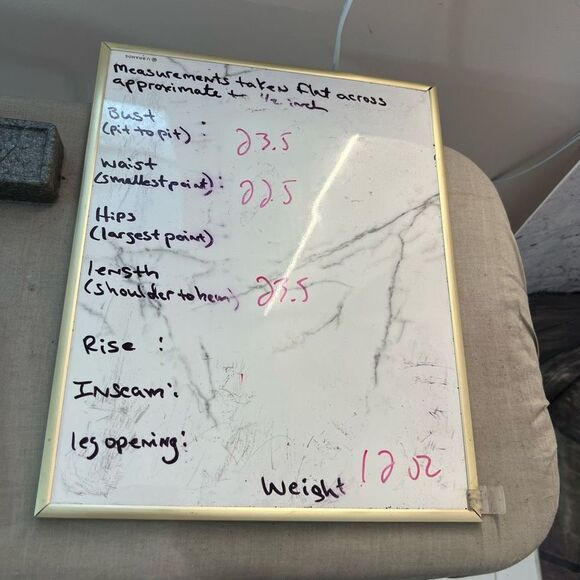 measurements taken flat across
approximate + 1/2 inch
Bust
(pit to pit) : 23.5
waist
(smallest point): 22.5
Hips
(largest point)
length
(shoulder to hem) 23.5
Rise :
Inseam:
leg opening:
Weight 12 oz